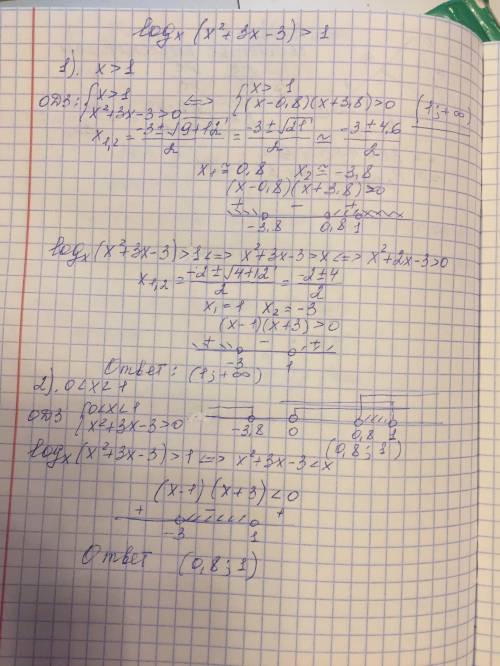 log_x (x² + 3x - 3) > 1
1). x > 1
ОДЗ: { x > 1 ; x² + 3x - 3 > 0 <=> { x > 1 ; (x - 0,8)(x + 3,8) > 0 (1; +∞)
x₁,₂ = (-3 ± √(9 + 12))/2 = (-3 ± √21)/2 ≅ (-3 ± 4,6)/2
x₁ ≅ 0,8 x₂ ≅ -3,8
(x - 0,8)(x + 3,8) > 0
+ - +
-3,8 0,8 1
log_x (x² + 3x - 3) > 1 <=> x² + 3x - 3 > x <=> x² + 2x - 3 > 0
x₁,₂ = (-2 ± √(4 + 12))/2 = (-2 ± 4)/2
x₁ = 1 x₂ = -3
(x - 1)(x + 3) > 0
+ - +
-3 1
Ответ: (1; +∞)
2). 0 < x < 1
ОДЗ { 0 < x < 1 ; x² + 3x - 3 > 0
-3,8 0 0,8 1
(0,8; 1)
log_x (x² + 3x - 3) > 1 <=> x² + 3x - 3 < x
(x - 1)(x + 3) < 0
+ - +
-3 1
Ответ (0,8; 1)